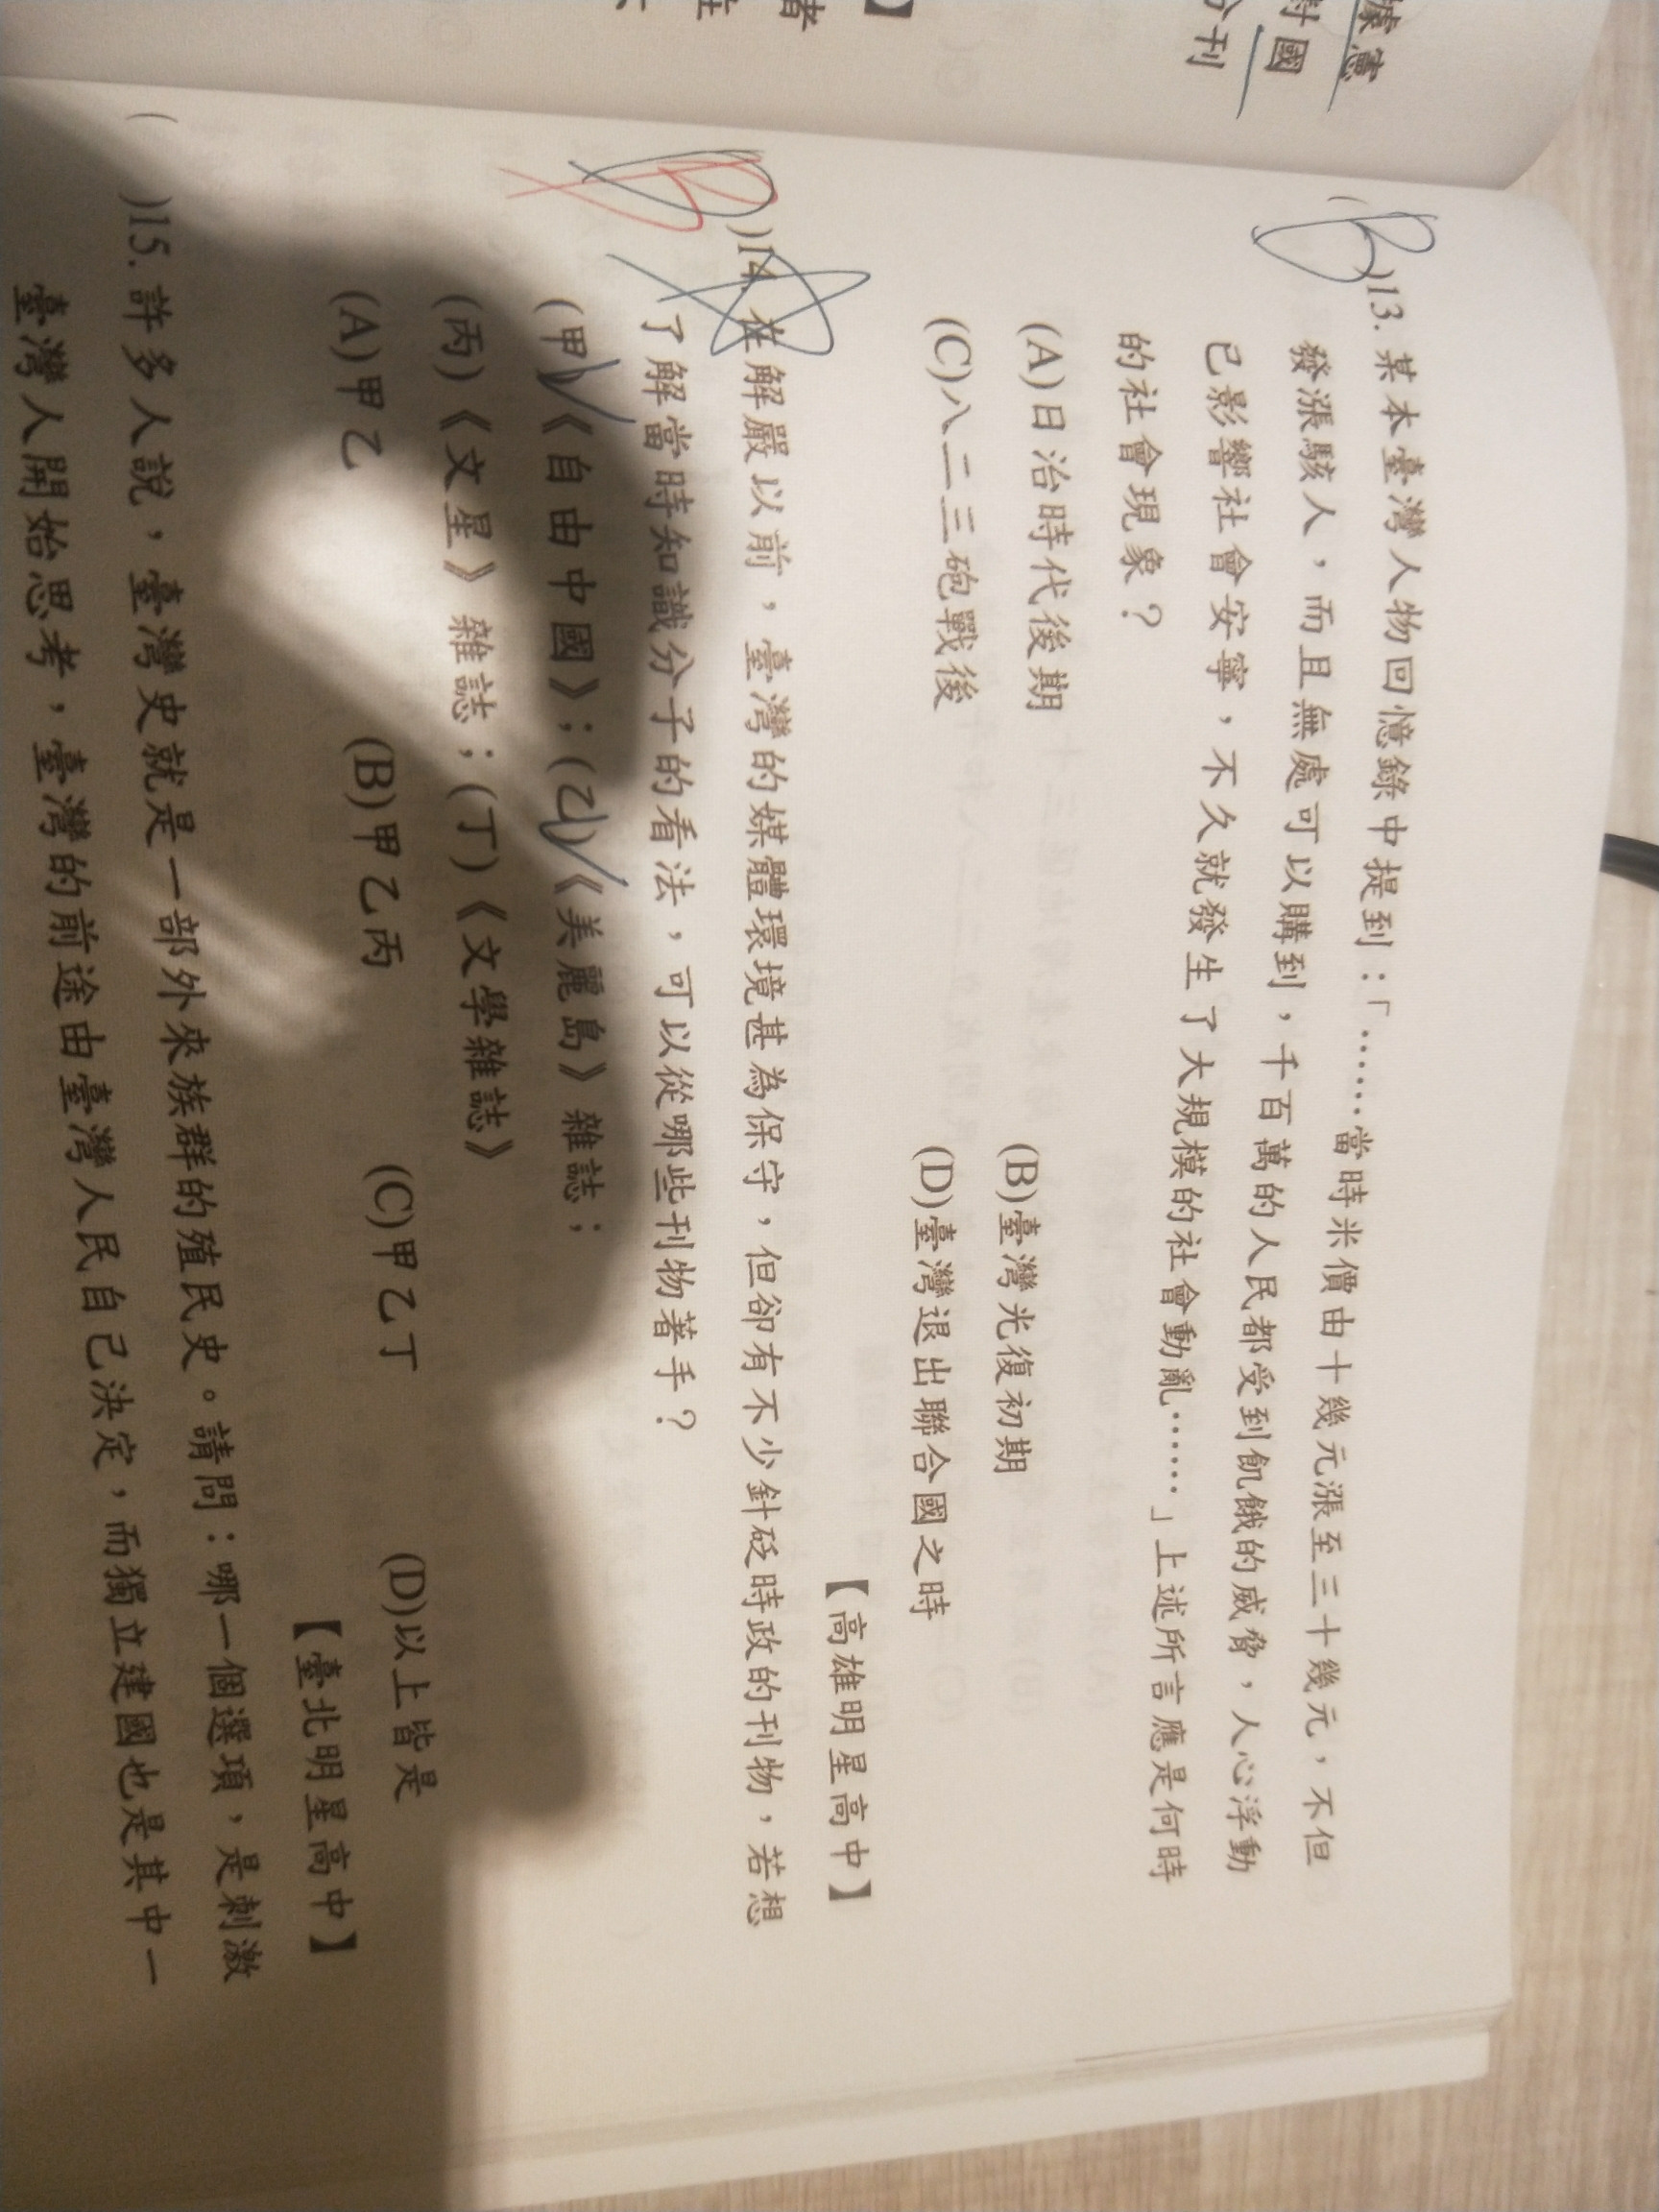 據憲
對國
分刊
】
者
(B)13. 某本臺灣人物回憶錄中提到：「……當時米價由十幾元漲至三十幾元，不但
發漲駭人，而且無處可以購到，千百萬的人民都受到飢餓的威脅，人心浮動
已影響社會安寧，不久就發生了大規模的社會動亂……」上述所言應是何時
的社會現象？
(A)日治時代後期 (B)臺灣光復初期
(C)八二三砲戰後 (D)臺灣退出聯合國之時
【高雄明星高中】
)14. 在解嚴以前，臺灣的媒體環境甚為保守，但卻有不少針砭時政的刊物，若想
了解當時知識分子的看法，可以從哪些刊物著手？
(甲)《自由中國》；(乙)《美麗島》雜誌；
(丙)《文星》雜誌；(丁)《文學雜誌》
(A)甲乙 (B)甲乙丙 (C)甲乙丁 (D)以上皆是
【臺北明星高中】
( )15. 許多人說，臺灣史就是一部外來族群的殖民史。請問：哪一個選項，是刺激
臺灣人開始思考，臺灣的前途由臺灣人民自己決定，而獨立建國也是其中一